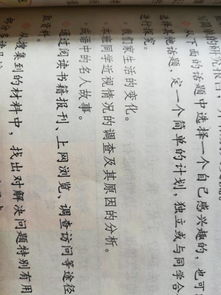 从下面的话题中选择一个自己感兴趣的，也可
选择其他话题，定一个简单的计划，独立或与同学合
进行探究。
我们家生活的变化。
本班同学近视情况的调查及其原因的分析。
成语中的名人故事。
通过阅读书籍报刊、上网浏览、调查访问等途径
取资料。
从搜集到的材料中，找出对解决问题特别有用